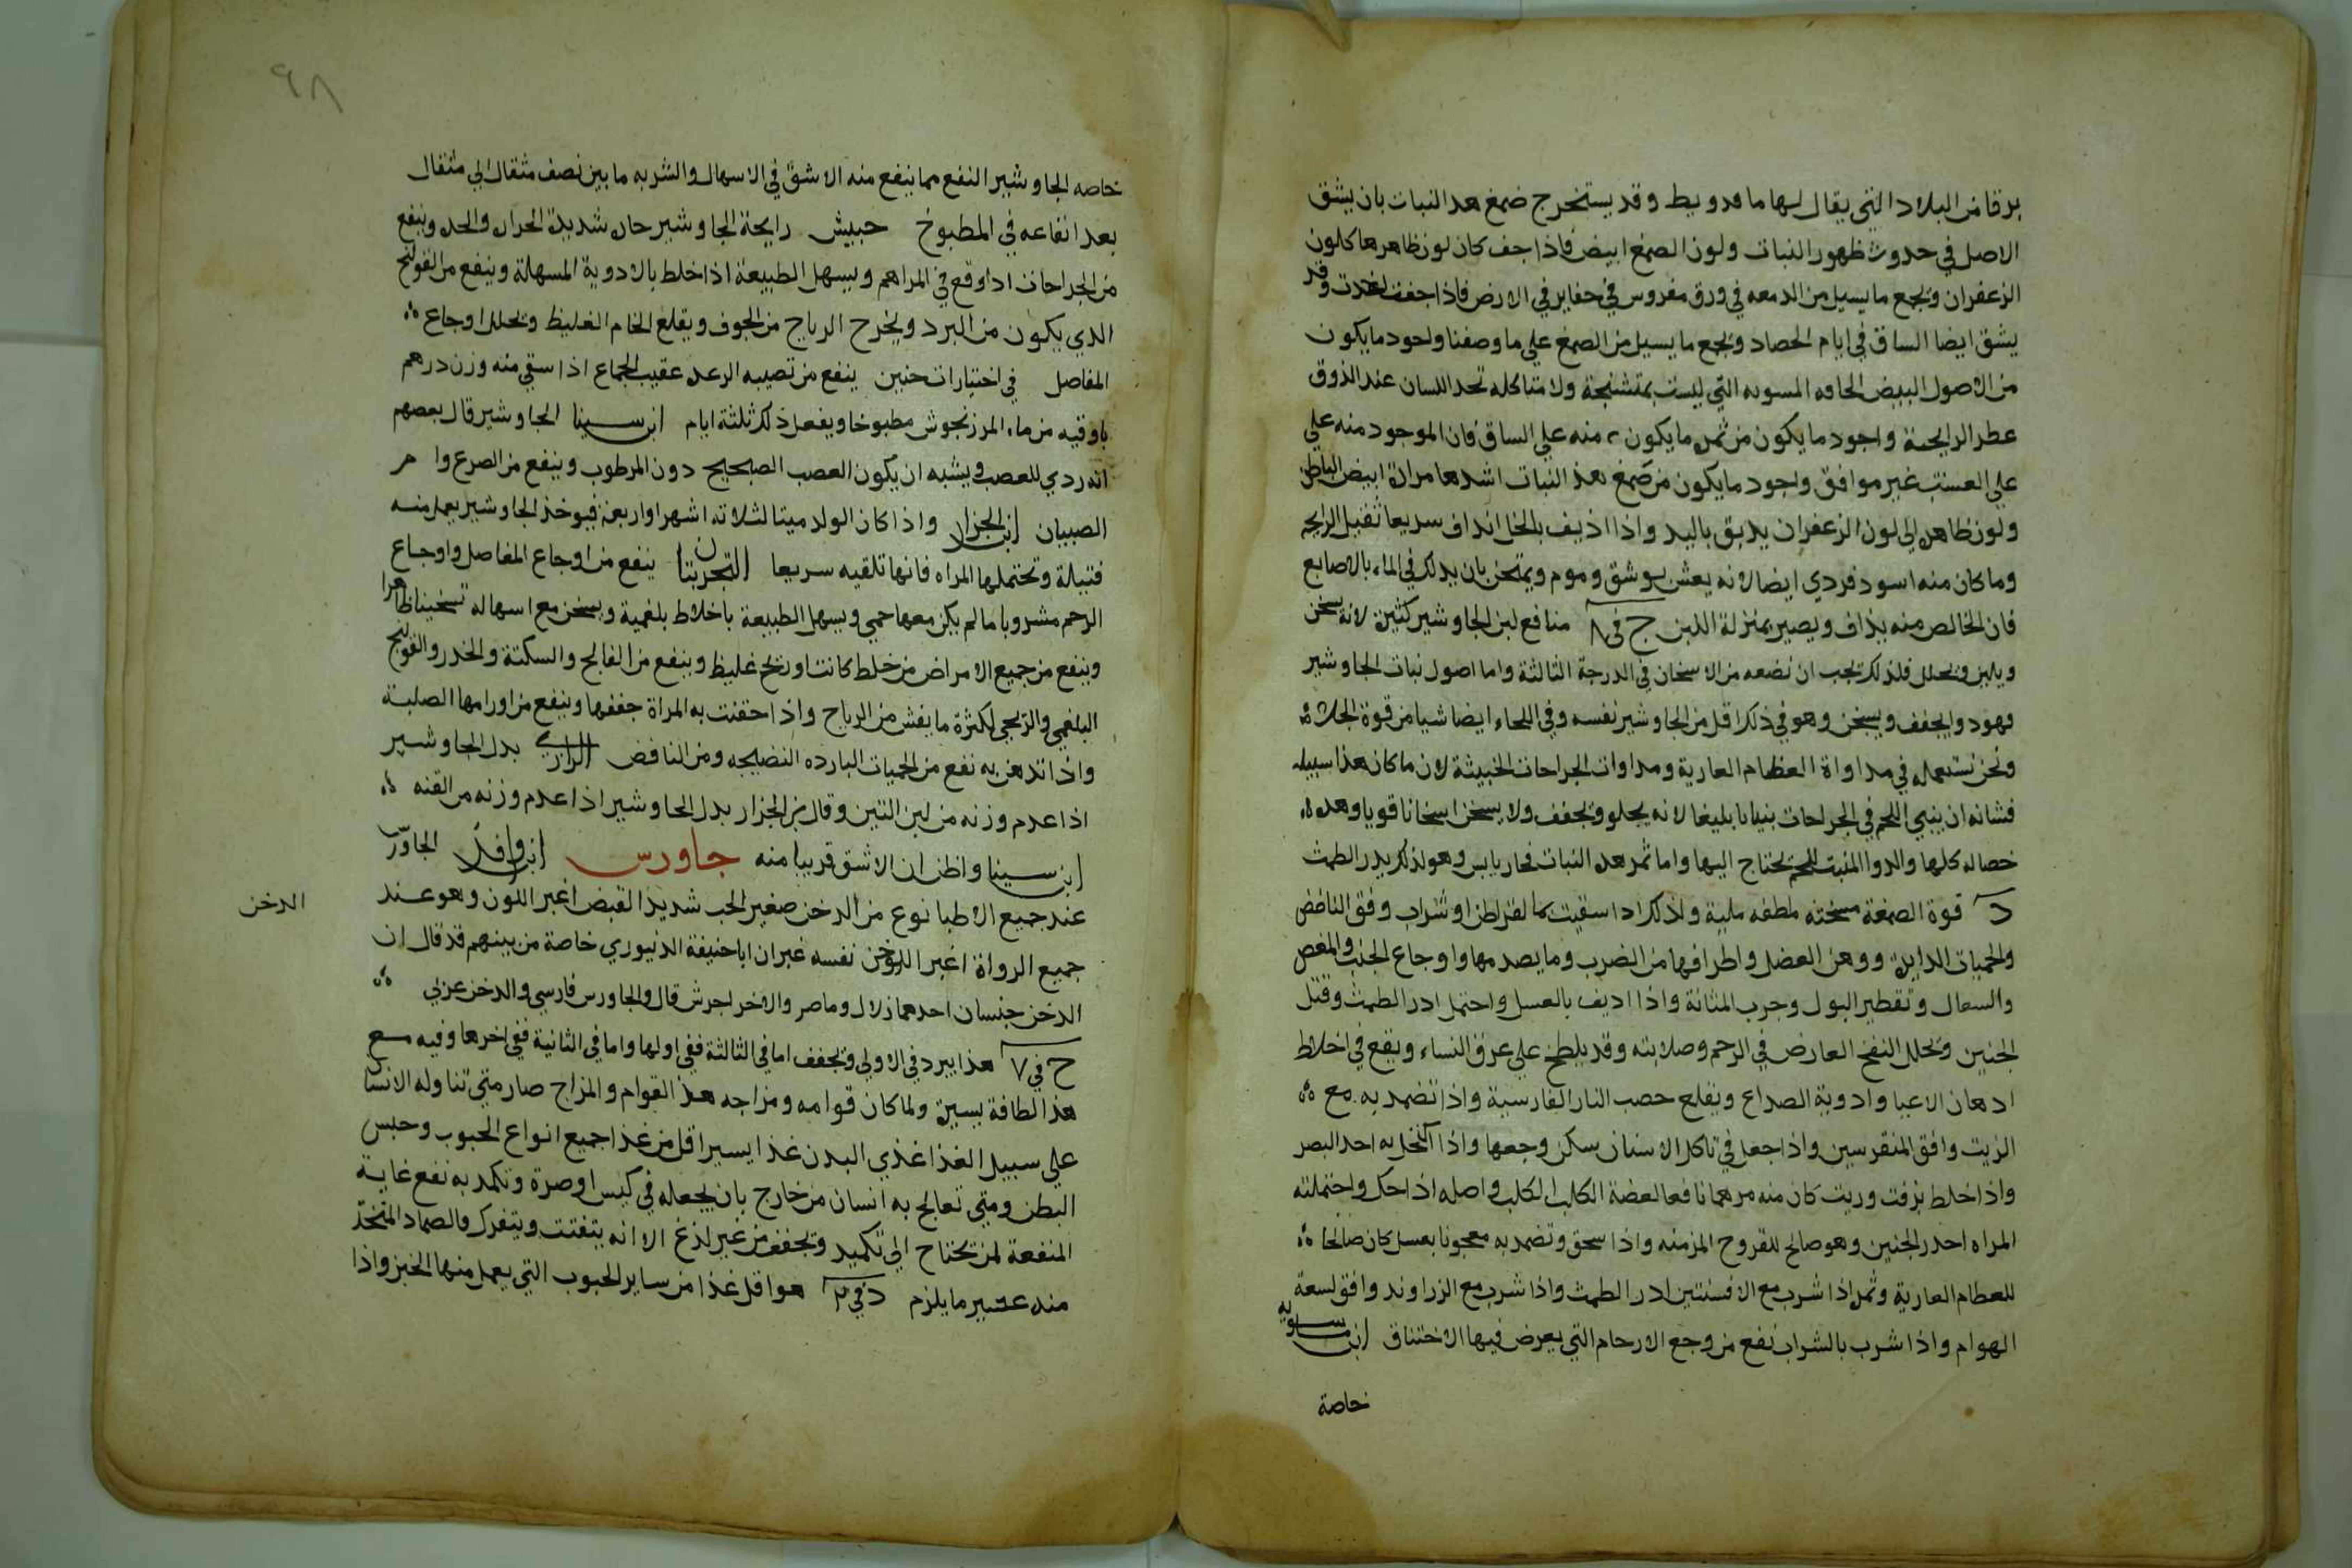 برقا من البلاد التي يقال لها ماقدونيط وقد يستخرج ضمغ هذا النبات بان يشق
الاصل في حدوث ظهور النبات ولون الصمغ ابيض فاذا جف كان لون ظاهرها كلون
الزعفران ويجمع ما يسيل من الدمعه في ورق مفروس في حفاير في الارض فاذا جفت اخذت وقد
يشق ايضا الساق في ايام الحصاد ويجمع ما يسيل من الصمغ علي ما وصفنا واجود ما يكون
من الاصول البيض الجافه المسويه التي ليست بمتشنجة ولا متاكله تحد اللسان عند الذوق
عطر الرايحة واجود ما يكون من ثمره ما يكون منه علي الساق فان الموجود منه علي
علي العسب غير موافق واجود ما يكون من صمغ هذا النبات اشدها مرارة ابيض الباطن
ولون ظاهره الي لون الزعفران يدبق باليد واذا اذيف بالخل انداف سريعا ثقيل الرايحه
وما كان منه اسود فردي ايضا لانه يغش بوشق وموم ويمتحن بان يدلك في الماء بالاصابع
فان الخالص منه يذاف ويصير بمنزلة اللبن ج في ٨ منافع لبن الجاوشير كثيرة لانه يسخن
ويلين ويحلل فلذلك يجب ان نضعه من الاسخان في الدرجة الثالثة واما اصول نبات الجاوشير
فهو دوا يجفف ويسخن وهو في ذلك اقل من الجاوشير نفسه وفي اللحاء ايضا شيا من قوة الجلاء
ونحن نستعمله في مداواة العظام العارية ومداوات الجراحات الخبيثة لان ما كان هذا سبيله
فشانه ان يبني اللحم في الجراحات بنيانا بليغا لانه يجلو ويجفف ولا يسخن اسخانا قويا وهذه
خصاله كلها والدوا المنبت للحم يحتاج اليها واما ثمر هذا النبات فحار يابس وهو لذلك يدر الطمث
د قوة الصمغة مسخنه ملطفه ملينة ولذلك اذا سقيت بما لقراطن او شراب وفق النافض
والحميات الدايرة ووهن العضل واطرافها من الضرب وما يصدمها واوجاع الجنب والمغص
والسعال وتقطير البول وجرب المثانة واذا اديف بالعسل واحتمل ادر الطمث وقتل
الجنين ويحلل النفخ العارض في الرحم وصلابته وقد يلطخ علي عرق النساء ويقع في اخلاط
ادهان الاعيا وادوية الصداع ويقلع حصب النار الفارسية واذا تضمد به مع
الزيت وافق المنقرسين واذا جعل في تاكل الاسنان سكن وجعها واذا اكتحل به احد البصر
واذا خلط بزفت وزيت كان منه مرهما نافعا لعضة الكلب الكلب واصله اذا حك واحتملته
المراه احدر الجنين وهو صالح للقروح المزمنه واذا سحق وتضمد به معجونا بعسل كان صالحا
للعظام العارية وثمره اذا شرب مع الافسنتين ادر الطمث واذا شرب مع الزراوند وافق لسعة
الهوام واذا شرب بالشراب نفع من وجع الارحام التي يعرض فيها الاختناق ابن ماسويه
خاصة
٩٨
خاصه الجاوشير النفع مما ينفع منه الاشق في الاسهال والشربه ما بين نصف مثقال الي مثقال
بعد انقاعه في المطبوخ حبيش رايحة الجاوشير حاره شديدة الحرار والحده وينفع
من الجراحات اذا وقع في المراهم ويسهل الطبيعة اذا خلط بالادوية المسهلة وينفع من القولنج
الذي يكون من البرد ويخرج الرياح من الجوف ويقلع الخام الغليظ ويحلل اوجاع
المفاصل في اختيارات حنين ينفع من تصيبه الرعده عقيب الجماع اذا سقي منه وزن درهم
باوقيه من ماء المرزنجوش مطبوخا ويفعل ذلك ثلثة ايام ابن سينا الجاوشير قال بعضهم
انه ردي للعصب ويشبه ان يكون العصب الصحيح دون المرطوب وينفع من الصرع وام
الصبيان ابن الجزار واذا كان الولد ميتا لثلاثه اشهر او اربعة فيوخذ الجاوشير يعمل منه
فتيلة وتحتملها المراه فانها تلقيه سريعا التجربتان ينفع من اوجاع المفاصل واوجاع
الرحم مشروبا ما لم يكن معها حمي ويسهل الطبيعة باخلاط بلغمية ويسخن مع اسهاله تسخينا ظاهرا
وينفع من جميع الامراض من خلط كانت او ريح غليظ وينفع من الفالج والسكتة والخدر والقولنج
البلغمي والريحي لكثرة ما يفش من الرياح واذا احتقنت به المراة جففها وينفع من اورامها الصلبة
واذا تدهن به نفع من الحميات البارده النضيجه ومن النافض الرازي بدل الجاوشير
اذا عدم وزنه من لبن التين وقال بن الجزار بدل الجاوشير اذا عدم وزنه من القنه
ابن سينا واظن ان الاشق قريبا منه جاورس ابن وافد الجاورس
عند جميع الاطبا نوع من الدخن صغير الحب شديد القبض اغبر اللون وهو عند
الدخن
جميع الرواة اغبر الدخن نفسه غير ان ابا حنيفة الدنيوري خاصة من بينهم قد قال ان
الدخن جنسان احدهما زلال وماصر والاخر اجرش قال والجاورس فارسي والدخن عربي
ج في ٧ هذا يبرد في الاولي ويجفف اما في الثالثة ففي اولها واما في الثانية ففي اخرها وفيه مع
هذا لطافة يسيرة ولما كان قوامه ومزاجه هذا القوام والمزاج صار متي تناوله الانسان
علي سبيل الغذا غذي البدن غذا يسيرا اقل من غذا جميع انواع الحبوب وحبس
البطن ومتي تعالج به انسان من خارج بان يجعله في كيس او صرة وتكمد به نفع غاية
المنفعة لمن يحتاج الي تكميد وتجفف من غير لذغ الا انه يتفتت ويتفرك والضماد المتخذ
منه عسير ما يلزم د في ٢ هو اقل غذا من ساير الحبوب التي يعمل منها الخبز واذا